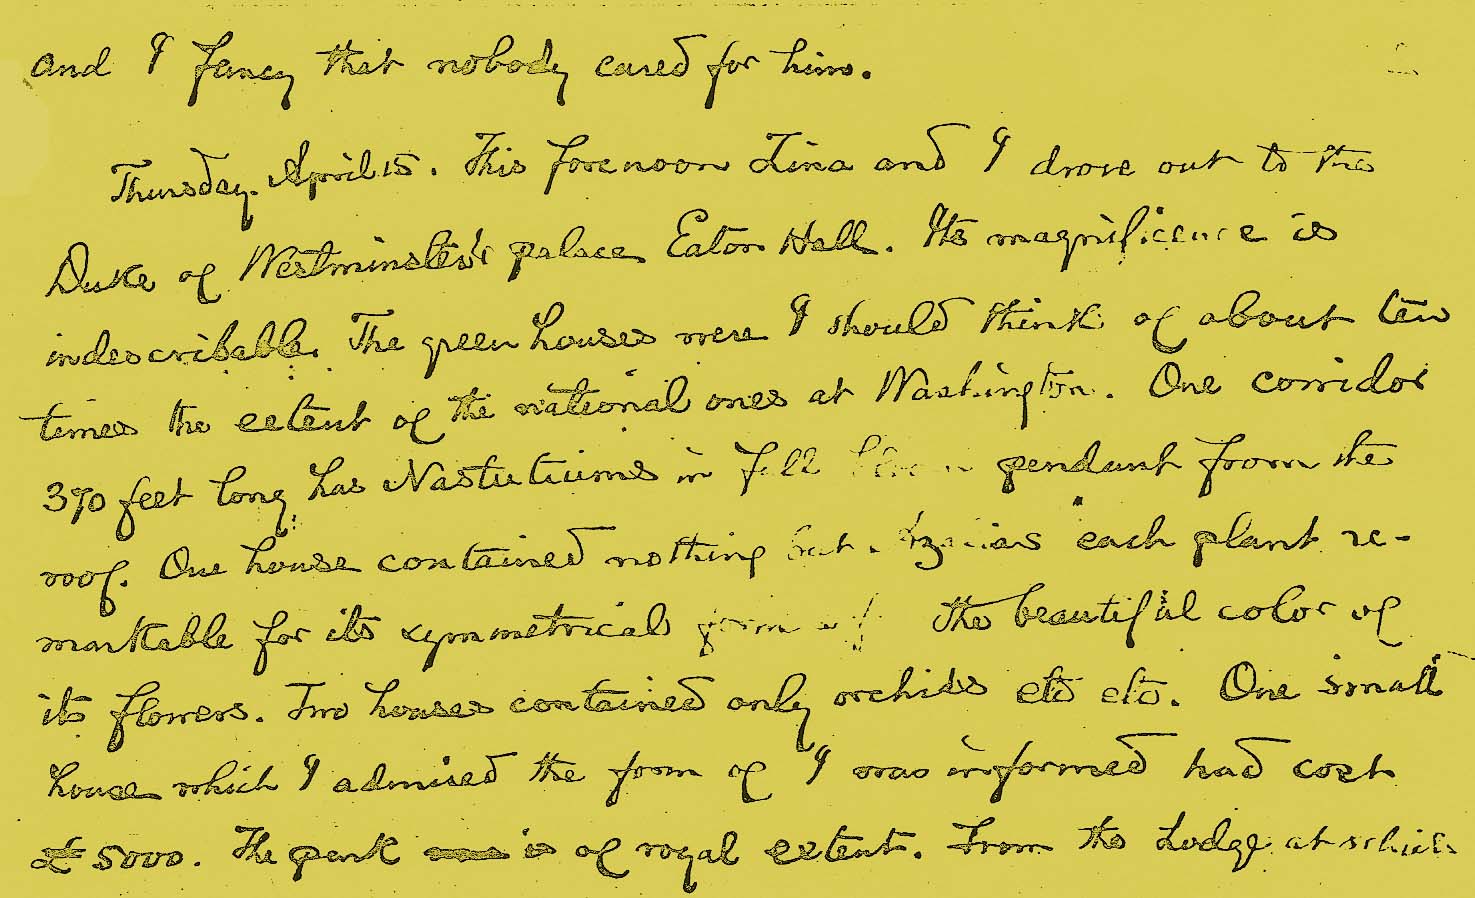 and I fancy that nobody cared for him.
Thursday. April 15. This forenoon Lina and I drove out to the
Duke of Westminster's palace Eaton Hall. Its magnificence is
indescribable. The green houses were I should think of about ten
times the extent of the national ones at Washington. One corridor
370 feet long has Nastutiums in full bloom pendant from the
roof. One house contained nothing but Azalias each plant re-
markable for its symmetrical form & the beautiful color of
its flowers. Two houses contained only orchids etc etc. One small
house which I admired the form of I was informed had cost
£5000. The park is of royal extent. From the Lodge at which